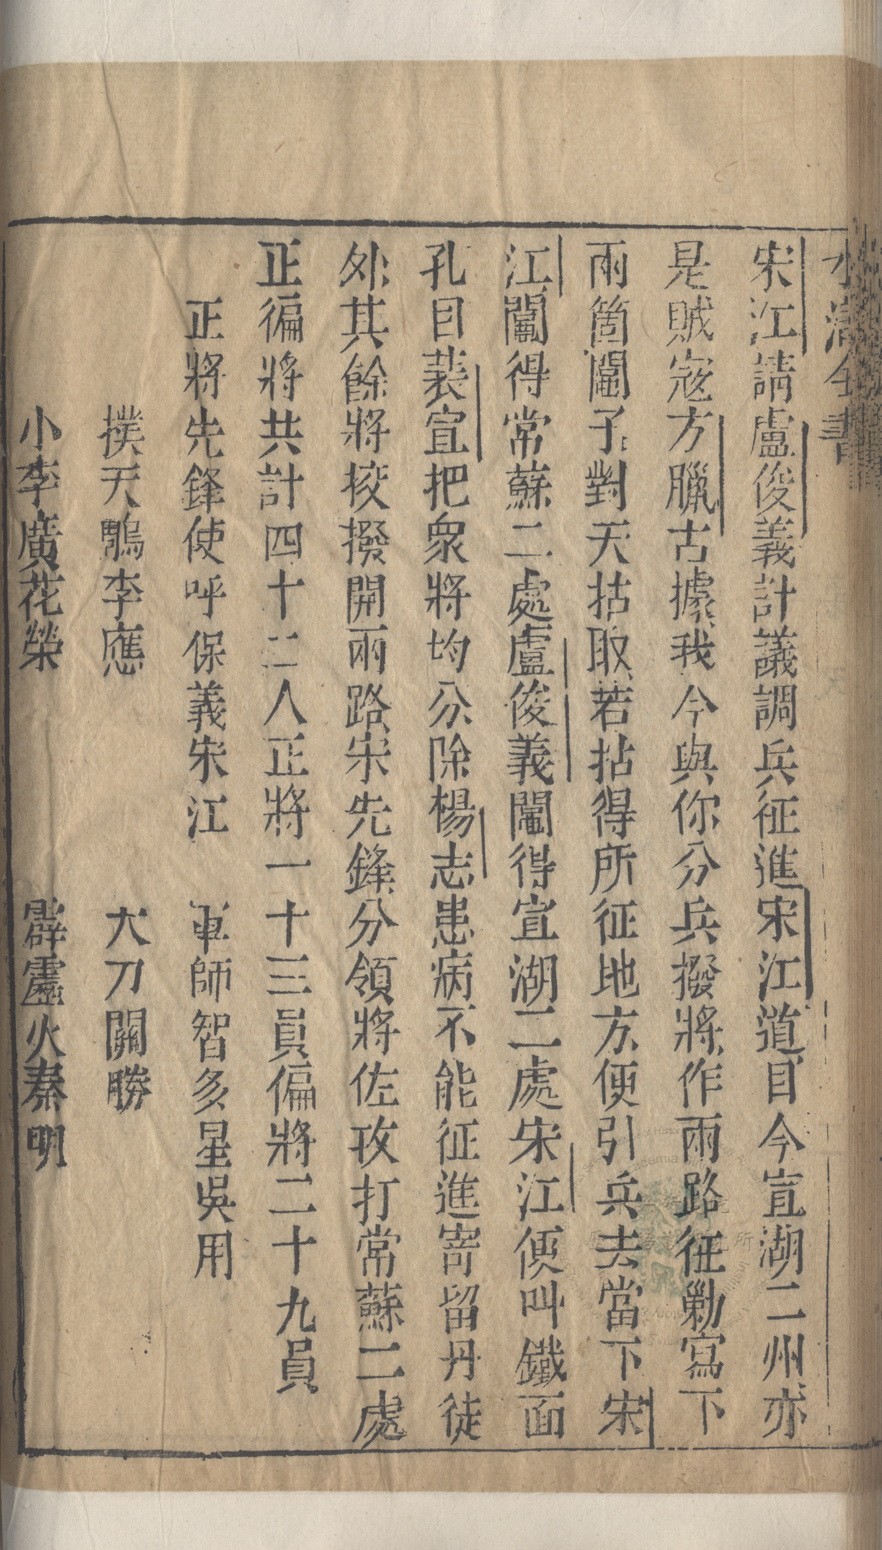 水滸全書
宋江請盧俊義計議調兵征進宋江道目今宣湖二州亦
是賊寇方臘占據我今與你分兵撥將作兩路征勦寫下
兩箇鬮子對天拈取若拈得所征地方便引兵去當下宋
江鬮得常蘇二處盧俊義鬮得宣湖二處宋江便叫鐵面
孔目裴宣把衆將均分除楊志患病不能征進寄留丹徒
外其餘將挍撥開兩路宋先鋒分領將佐攻打常蘇二處
正徧將共計四十二人正將一十三員偏將二十九員
正將先鋒使呼保義宋江 軍師智多星吳用
撲天鵰李應 大刀關勝
小李廣花榮 霹靂火秦明